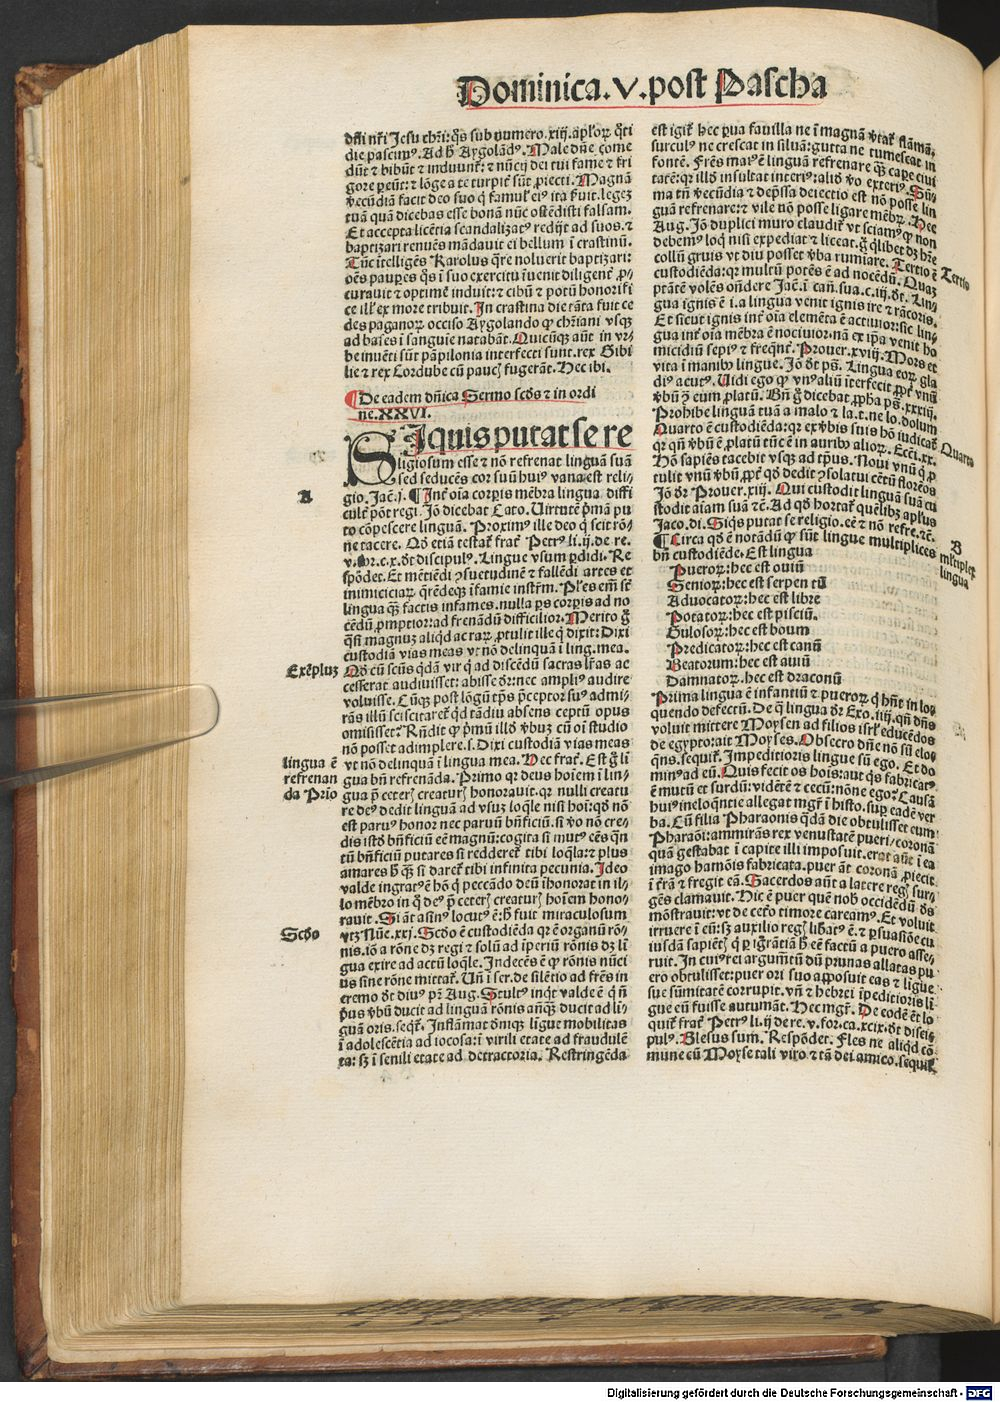 Dominica.V.post Pascha
dñi nr̃i Jesu chr̃i: q̃s sub numero.xiij.apl'oꝝ q̃ti
die pascimꝰ. Ad h̃ Aygolãdꝰ. Male dñe come
dũt ⁊ bibũt ⁊ induunt᷑: ⁊ nũcij dei tui fame ⁊ fri
gore pereũt: ⁊ lõge a te turpit᷑ sũt ꝓiecti. Magnã
verecũdiã facit deo suo q̃ famul'eiꝰ ita seruit.legez
tuã quã dicebas esse bonã nũc ostẽdisti falsam.
Et accepta licẽtia scandalizatꝰ redijt ad suos.⁊
baptizari renuẽs mãdauit ei bellum ĩ crastinũ.
Tũc ĩtelligẽs Karolus q̃re noluerit baptizari:
oẽs pauꝑes q̃s ĩ suo exercitu ĩuenit diligent᷑ ꝓ-
curauit ⁊ optime induit: ⁊ cibũ ⁊ potũ honorifi
ce ill'ex more tribuit. In crastina die tãta fuit ce
des paganoꝝ occiso Aygolando ꝙ chr̃iani vsqꝫ
ad bases ĩ sanguie natabãt. Quicũqꝫ aũt in vr-
be inuẽti sũt pãpilonia interfecti sunt.rex Sibi
lie ⁊ rex Cordube cũ paucis fugerãt. Hec ibi.
¶De eadem dñica Sermo scd̃s ⁊ in ordi
ne.XXVI.
SI quis putat se re
ligiosum esse ⁊ nõ refrenat linguã suã
sed seducẽs cor suũ huiꝰ vana est reli-
gio. Jac̃.j. ¶Int᷑ oĩa corꝑis mẽbra lingua diffi
cult᷑ põt regi. Jõ dicebat Cato. Virtutẽ pͥmã pu
to cõpescere linguã. Proximꝰ ille deo q̃ scit rõ-
ne tacere. Qd̃ etiã testat᷑ frat᷑ Petrꝰ li.ij.de re.
Respõdet. Et mẽtiẽdi ꝯsuetudinẽ ⁊ fallẽdi artes et
lingua qꝫ factis infames.nulla pars corꝑis ad no
cẽdũ ꝓmptior: ad frenãdũ difficilior. Merito g̃
q̃si magnuꝫ aliqd ac raꝝ ꝓtulit ille q̃ dixit: Dixi
custodiã vias meas vt nõ delinquã ĩ ling.mea.
Qd̃ cũ scũs q̃dã vir q̃ ad discẽdũ sacras lr̃as ac
cesserat audiuisset: abisse dr̃: nec ampliꝰ audire
voluisse. Cũqꝫ post lõgũ tp̃s p̃ceptor suꝰ admi-
rãs illũ sciscitaret᷑ q̃d tãdiu absens ceptũ opus
omisisset: Rñdit ꝙ pͥmũ illd̃ v̓buꝫ cũ oĩ studio
nõ posset adimplere.s. Dixi custodiã vias meas
vt nõ delinquã ĩ lingua mea. Hec frat᷑. Est g̃ li
gua bñ refrenãda. Primo qꝛ deus hoĩem ĩ lin-
gua p̃ ceteris creaturis honorauit.qꝛ nulli creatu
re deꝰ dedit linguã ad vsuꝫ loq̃le nisi hoĩ: qd̃ nõ
est paruꝰ honor nec paruũ bñficiũ.si v̓o nõ cre-
dis istd̃ bñficiũ eẽ magnũ: cogita si mutꝰ eẽs q̃n
tũ bñficiũ putares si redderet᷑ tibi loq̃la: ⁊ plus
amares h̃ qꝫ si daret᷑ tibi infinita pecunia. Ideo
valde ingratꝰ ẽ hõ q̃ peccãdo deũ ĩhonorat in il-
lo mẽbro in q̃ deꝰ p̃ ceteris creaturis hoĩem hono-
rauit. Si aũt asinꝰ locutꝰ ẽ: h̃ fuit miraculosum
vtꝫ Nũe.xxj. Scd̃o ẽ custodiẽda qꝛ ẽ organũ rõ-
nis.iõ a rõne dꝫ regi ⁊ solũ ad ĩperiũ rõnis dꝫ li
gua exire ad actũ loq̃le. Indecẽs ẽ ꝙ rõnis nũci
us sine rõne mittat᷑. Uñ ĩ ser.de silẽtio ad fr̃es in
eremo dt diuꝰ pr̃ Aug. Stultꝰ inq̃t valde ẽ q̃ ñ
pͥus v̓bũ ducit ad linguã rõnis añqꝫ ducit ad li-
guã oris.seqt᷑. Inflamat oẽmqꝫ ligue mobilitas
ĩ adolescẽtia ad iocosa: ĩ virili etate ad fraudulẽ
ta: sꝫ ĩ senili etate ad detractoria. Restringẽda
A
Exẽpluꝫ
lingua ẽ
refrenan
da Prio
Scd̃o
est igit᷑ hec ꝑua fauilla ne ĩ magnã v̓tat᷑ flãmã.
surculꝰ ne crescat in siluã: gutta ne tumescat in
fontẽ. Fr̃es maiꝰ ẽ linguã refrenare qꝫ capere ciui
tatẽ: qꝛ illd̃ insultat interiꝰ: alid̃ vo exteriꝰ. Sũ-
ma tñ v̓ecũdia ⁊ dep̃ssa deiectio est nõ posse lin
guã refrenare: ⁊ vile nõ posse ligare mẽbꝝ. Hec
Aug. Jõ duplici muro claudit᷑ vt sciamꝰ ꝙ non
debemꝰ loq̃ nisi expediat ⁊ liceat.g̃ q̃libet dꝫ hr̃e
collũ gruis vt diu posset v̓ba rumiare. Tertio ẽ
custodiẽda: qꝛ multũ potẽs ẽ ad nocẽdũ. Quaꝫ
ptãtẽ volẽs oñdere Jac̃.ĩ can̄.sua.c.iij.dt. Lin-
gua ignis ẽ ĩ.a lingua venit ignis ire ⁊ rãcoris.
Et sicut ignis int᷑ oĩa elemẽta ẽ actiuior: sic lin-
gua int᷑ oĩa mẽbra ẽ nociuior.nã ex ip̃a venit ho
micidiũ sepiꝰ ⁊ freq̃nt᷑. Prouer.xviij. Mors et
vita ĩ manibꝰ lingue. Jõ dt ps̃. Lingua eoꝝ gla
diꝰ acutꝰ. Uidi ego ꝙ vnꝰ aliũ ĩterfecit ꝓpt᷑ vnũ
v̓bũ ꝑ eum ꝓlatũ. Bñ g̃ dicebat ꝓpha ps̃.xxxiij.
Prohibe linguã tuã a malo ⁊ la.t.ne lo.dolum
Quarto ẽ custodiẽda: qꝛ ex v̓bis suis hõ iudicat᷑
qꝛ qñ v̓bũ ẽ ꝓlatũ tũc ẽ in auribꝰ alioꝝ. Ecci.xx.
Hõ sapiẽs tacebit vsqꝫ ad tp̃us. Noui vnũ q̃ ꝑ
tulit vnũ v̓bũ ꝓpt᷑ qd̃ dedit ꝯsolatui cẽtũ floreos
Jõ dr̃ Prouer.xiij. Qui custodit linguã suã cu
stodit aĩam suã ⁊c̃. Ad qd̃ hortat᷑ quẽlibꝫ apl'us
Jaco.di. Siq̃s putat se religio.eẽ ⁊ nõ refre.⁊c̃.
¶Circa qd̃ ẽ notãdũ ꝙ sũt lingue multiplices
bñ custodiẽde. Est lingua
Pueroꝝ: hec est ouiũ
Senioꝝ: hec est serpen tũ
Aduocatoꝝ: hec est libre
Potatoꝝ: hec est pisciũ.
Gulosoꝝ: hec est boum
Predicatoꝝ: hec est canũ
Beatorum: hec est auiũ
Damnatoꝝ.hec est draconũ
Prima lingua ẽ infantiũ ⁊ pueroꝝ q̃ hñt in lo-
quendo defectũ. De q̃ lingua dr̃ Exo.iiij.qñ dñs
voluit mittere Moysen ad filios isrl' educẽdos
de egypto: ait Moyses. Obsecro dñe nõ sũ eloq̃ns.
seqt᷑. Impeditioris lingue sũ ego. Et do
minꝰ ad eũ. Quis fecit os hoĩs: aut q̃s fabricatꝰ
ẽ mutũ et surdũ: vidẽtẽ ⁊ cecũ: nõne ego? Causã
huiꝰ ineloq̃ntie allegat mgr̃ ĩ histo.sup eadẽ ver
ba. Cũ filia Pharaonis q̃dã die obtulisset eum
Pharaõi: ammirãs rex venustatẽ pueri / coronã
quã gestabat ĩ capite illi imposuit.erat aũt ĩ ea
imago hamõis fabricata.puer aũt coronã ꝓiecit
ĩ tr̃ã ⁊ fregit eã. Sacerdos aũt a latere regis sur-
gẽs clamauit. Hic ẽ puer quẽ nob̃ occidẽdũ d̓s
mõstrauit: vt de cetõ timore careamꝰ. Et voluit
irruere ĩ eũ: sꝫ auxilio regis libatꝰ ẽ.⁊ ꝑsuasiõe cu
iusdã sapiẽtis q̃ ꝑ igrãtiã h̃ eẽ factũ a puero asse-
ruit. In cuiꝰ rei argumẽtũ dũ prunas allatas pu
ero obtulisset: puer ori suo apposuit eas ⁊ ligue
sue sũmitatẽ corrupit. vñ ⁊ hebrei ĩpeditioris li-
gue eũ fuisse autumãt. Hec mgr̃. De eodẽ ẽt lo
quit᷑ frat᷑ Petrꝰ li.ij de re.v.for.ca.xcix.dt disci
pulꝰ. Blesus sum. Respõdet. Fles ne aliq̃d cõ
mune eũ Moyse tali viro ⁊ tã dei amico.sequit᷑
Tertio
Quarto
B
mltiplex
lingua
Digitalisierung gefördert durch die Deutsche Forschungsgemeinschaft - DFG